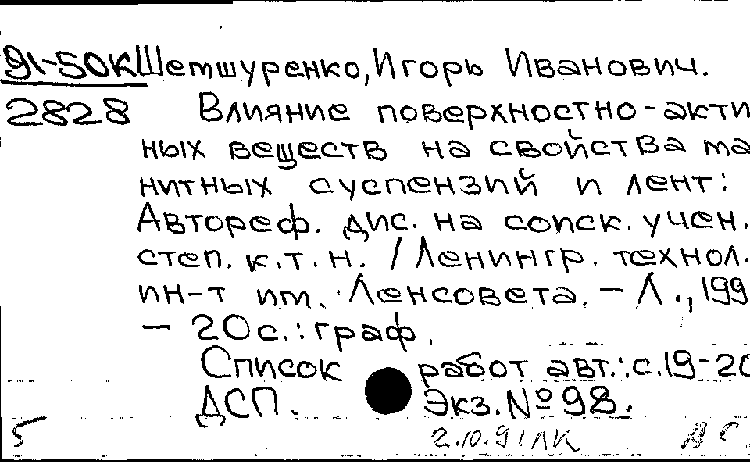 91-50К Шемшуренко, Игорь Иванович.
2828 Влияние поверхностно-акти
ных веществ на свойства ма
нитных суспензий и лент:
Автореф. дис. на соиск. учен.
степ. к.т.н. / Ленингр. технол.
ин-т им. Ленсовета. – Л., 199
– 20 с.: граф.
Список работ авт.: с. 19-20
ДСП. Экз. № 98.
5 2.10.91 ЛК